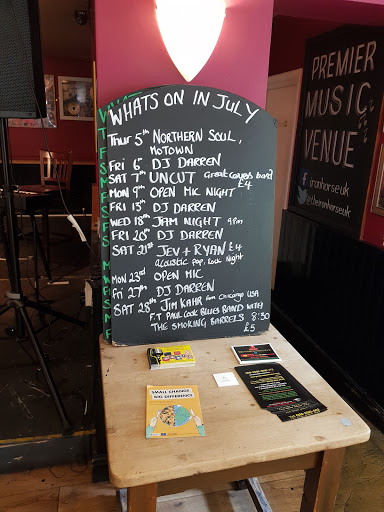 WHATS ON IN JULY
Thur 5th NORTHERN SOUL,
MOTOWN
FRI 6th DJ DARREN
SAT 7th UNCUT Great covers band
£4
MON 9th OPEN MIC NIGHT
FRI 13th DJ DARREN
WED 18th JAM NIGHT 9pm
FRI 20th DJ DARREN
SAT 21st JEV + RYAN £4
acoustic pop, rock Night
MON 23rd OPEN MIC
Fri 27th DJ DARREN
SAT 28th JIM KAHR from Chicago USA
F.T PAUL COOK BLUES BAND WITH
THE SMOKING BARRELS 8:30
£5
PREMIER
MUSIC
VENUE
ironhorseuk
@theironhorseuk
SMALL CHANGE
BIG DIFFERENCE